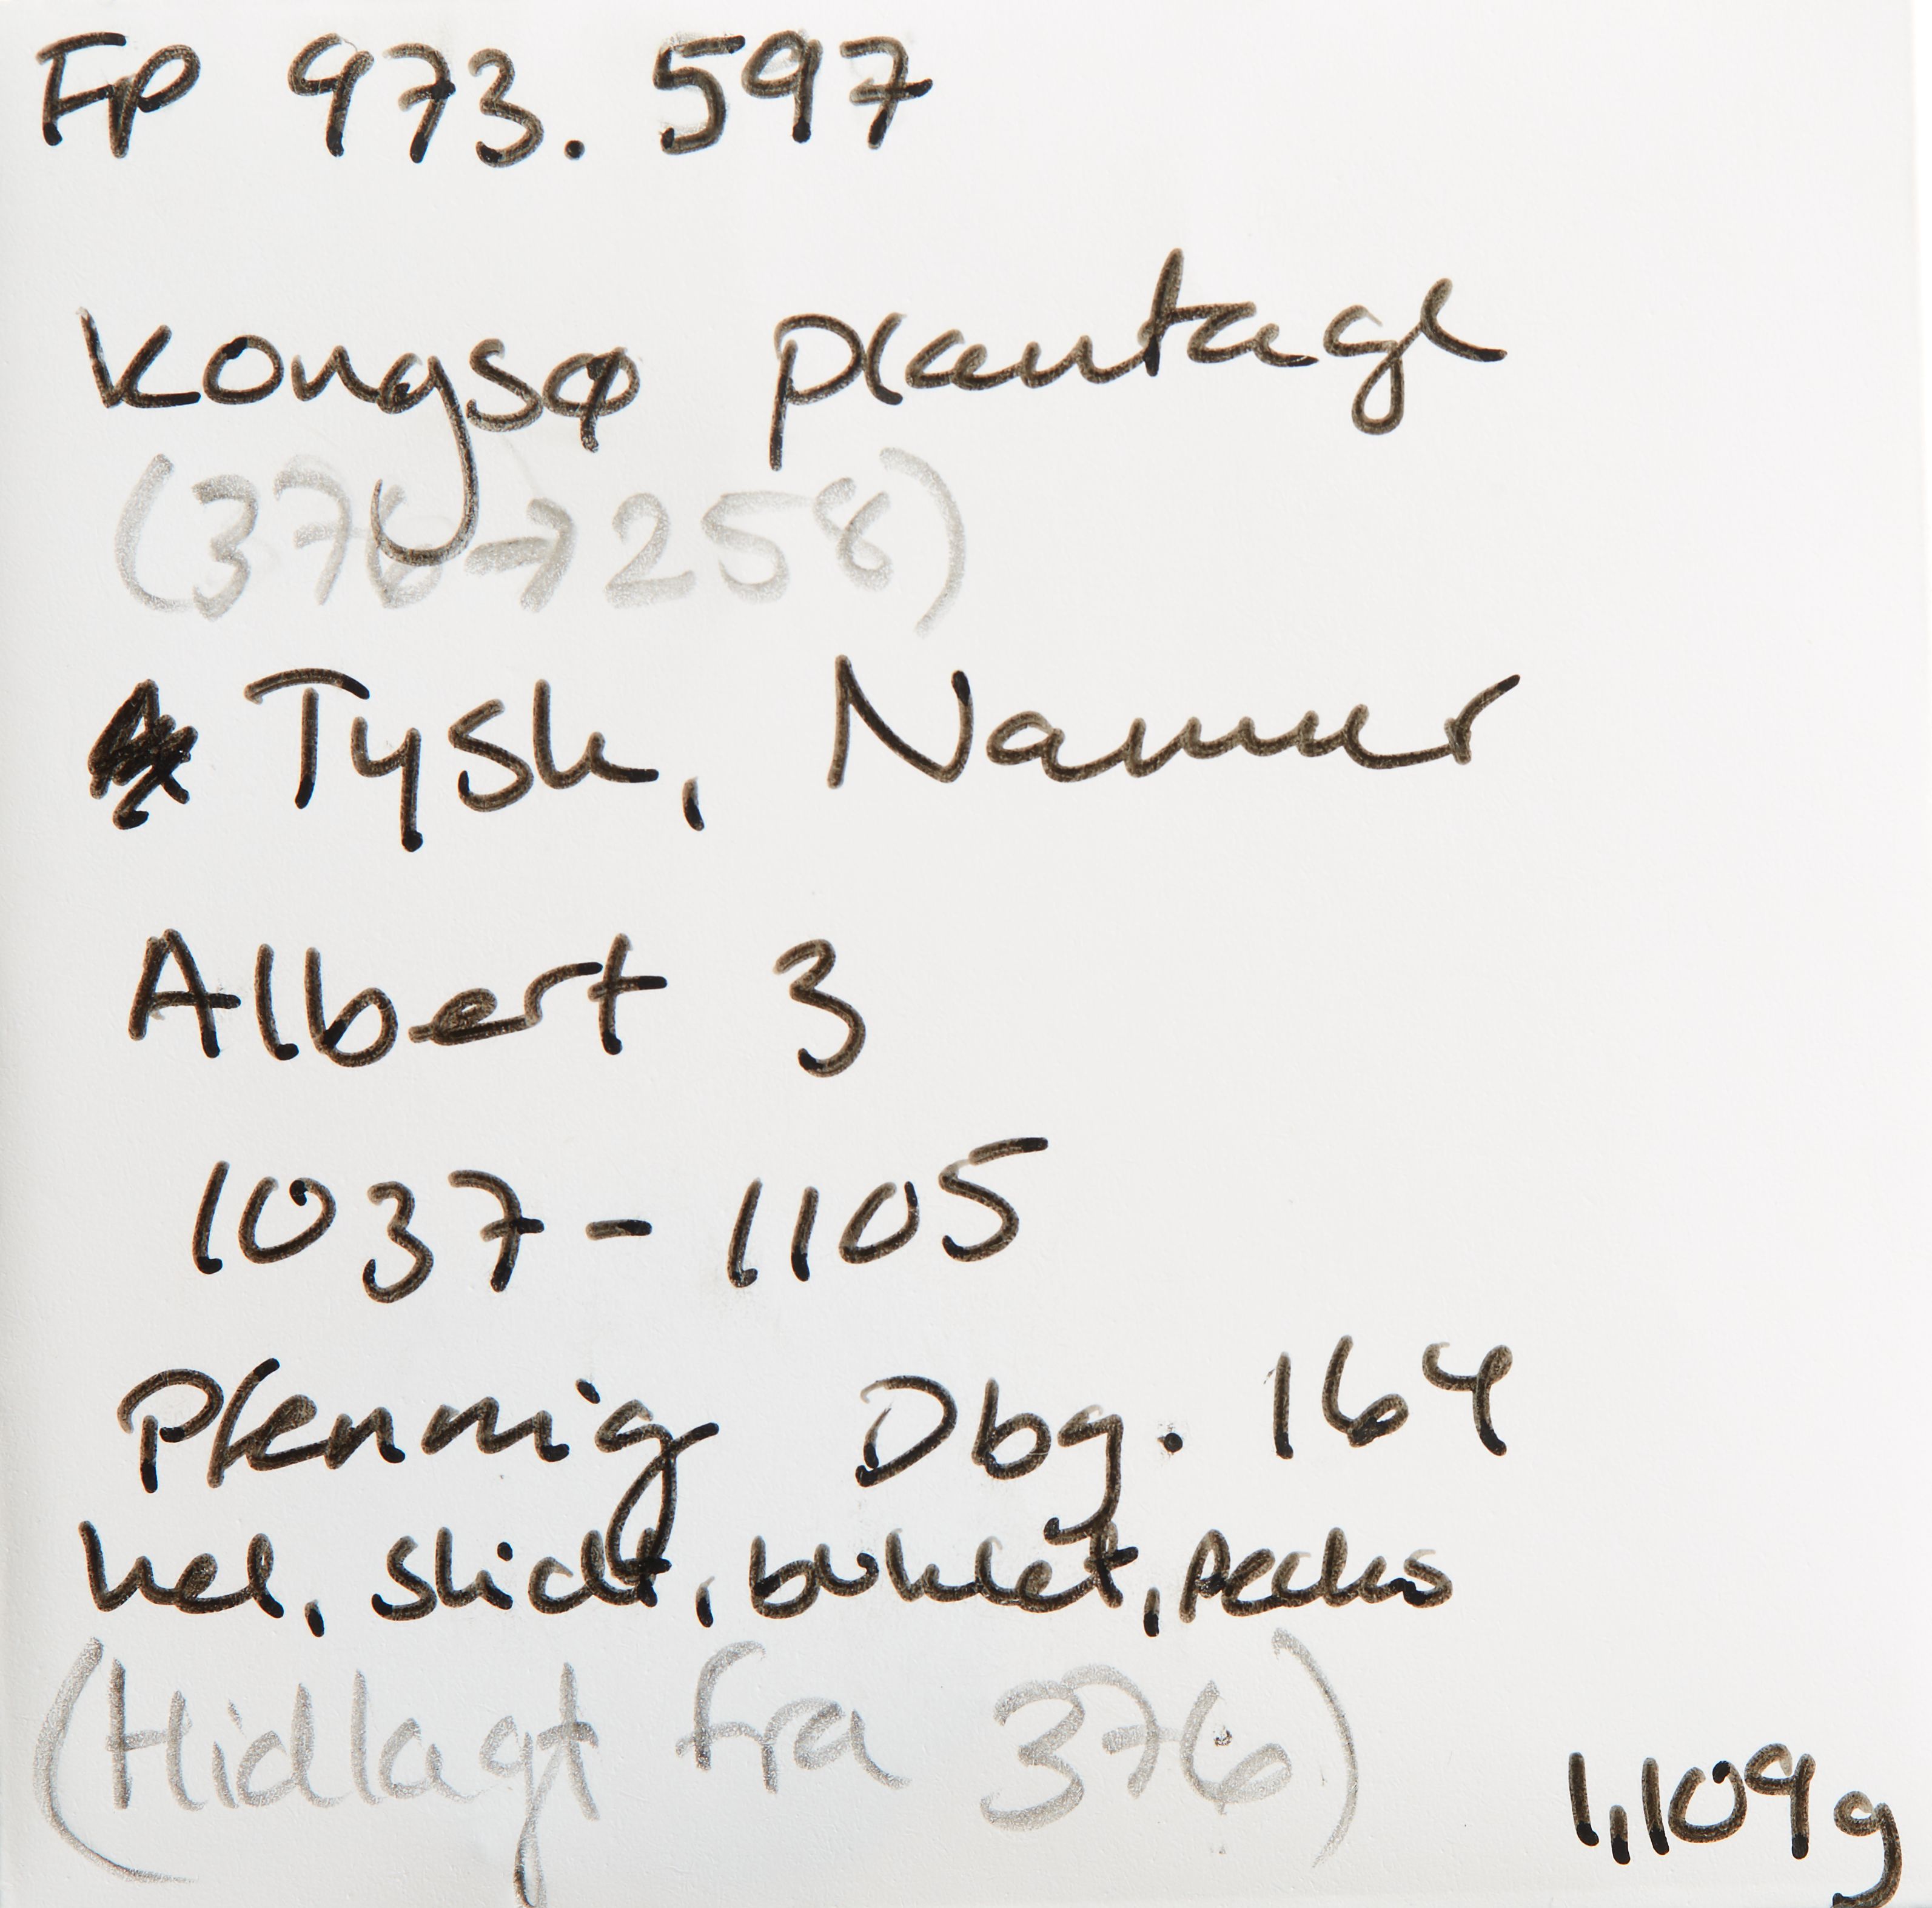 FP 973.597
Kongsø plantage
(376→258)
Tysk, Namur
Albert 3
1037-1105
Pfennig Dbg. 164
hel, slidt, buklet, pecks
(Hidlagt fra 376)
1,109g